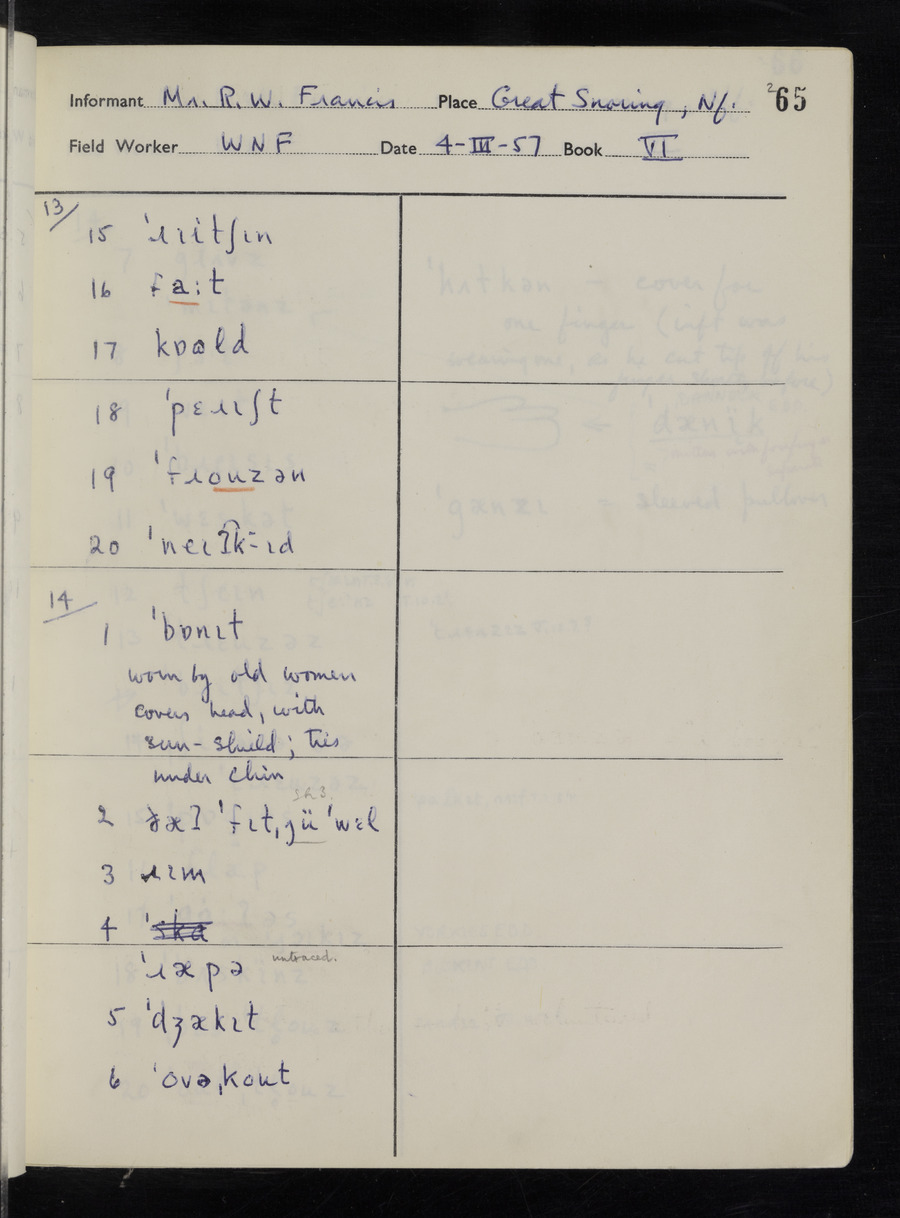 Informant Mr. R. W. Francis Place Great Snoring, Nf. 265
Field Worker WNF Date 4-III-57 Book VI
13/
15 ˈɹiitʃɪn
16 fa:t
17 kɒəld
18 ˈpɛɹɪʃt
19 ˈfɹouzən
20
14
1 ˈbɒnɪt
worn by old women
covers head, with
sun-shield; ties
under chin
2 ðæʔ ˈfɪtˌjü ˈwɛl
3 ɹɪm
4 ˈska
ˈɹæpə untraced.
5 ˈdʒækɪt
6 ˈovəˌkout